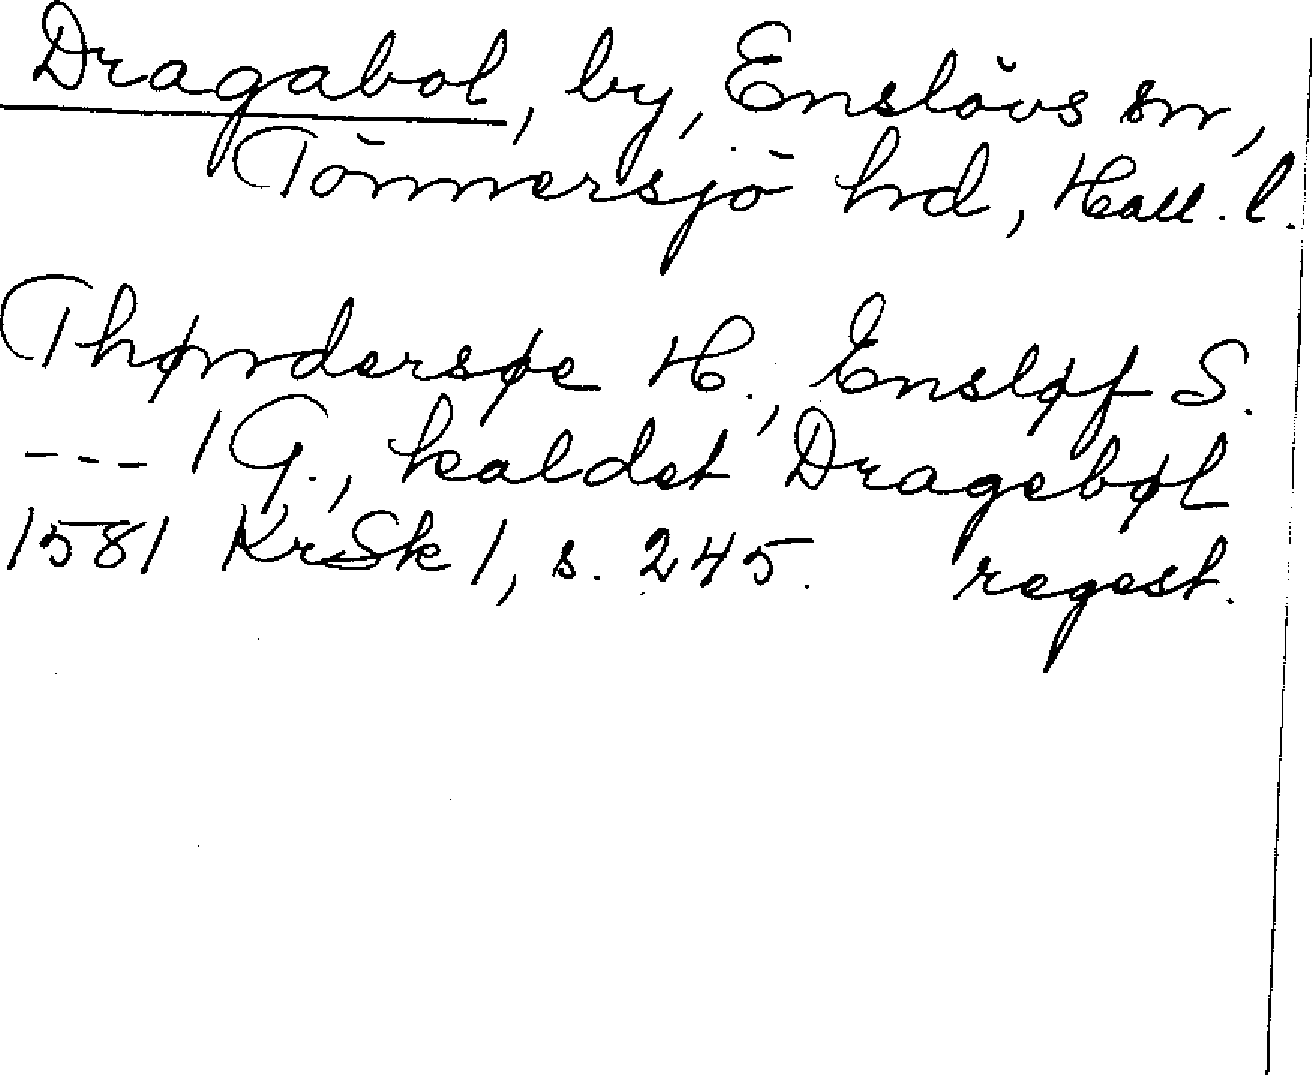 Dragabol, by, Enslövs sn,
Tönnersjö hd, Hall. l.
Thøndersøe H., Ensløf S.
--- 1 G., kaldet Dragebøl
1581 KrSk 1, s. 245. regest.